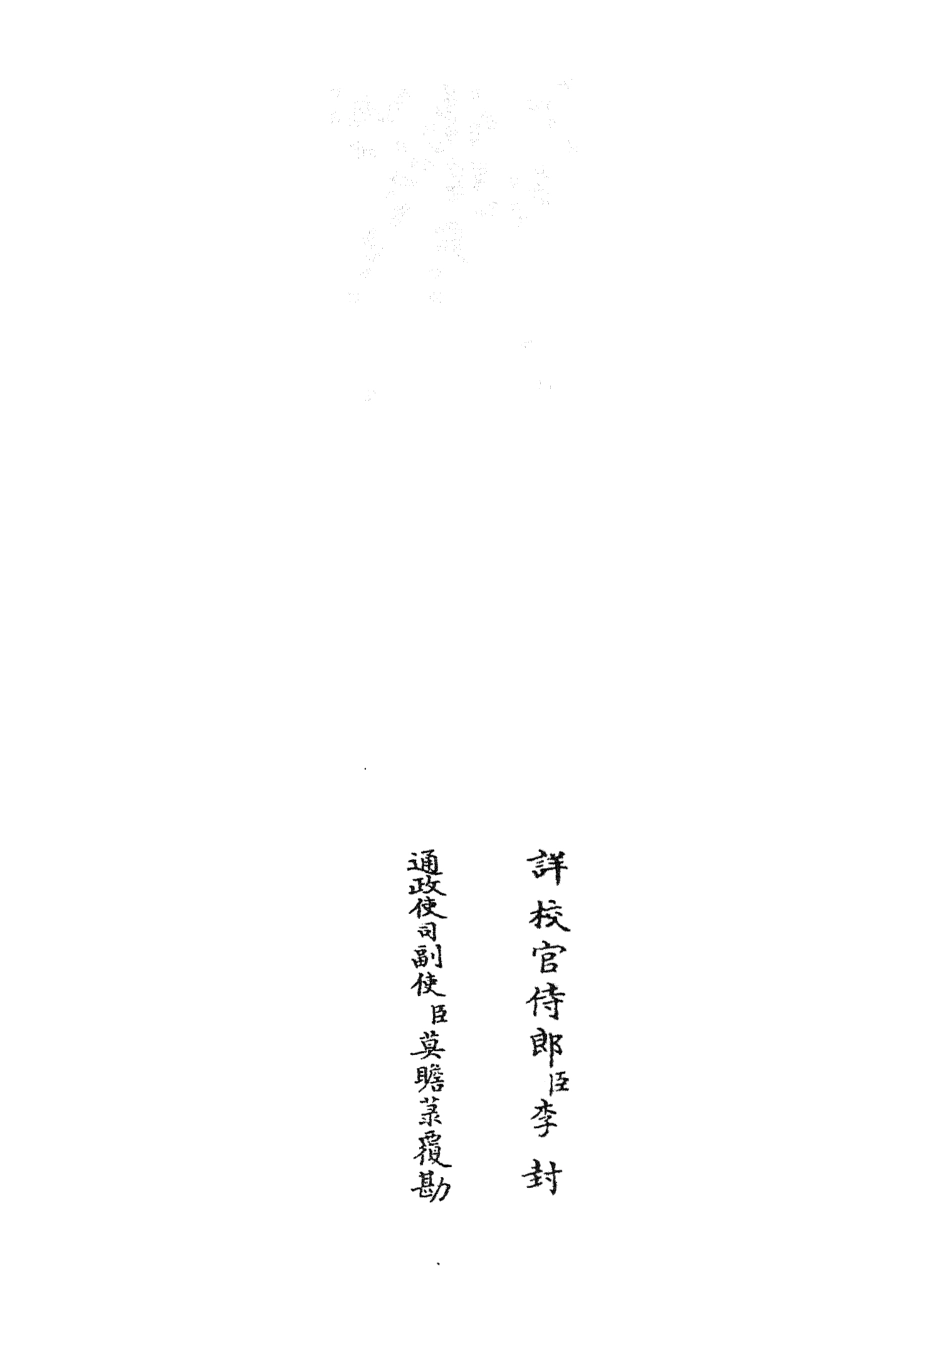 詳校官侍郎臣李封
通政使司副使臣莫瞻菉覆勘